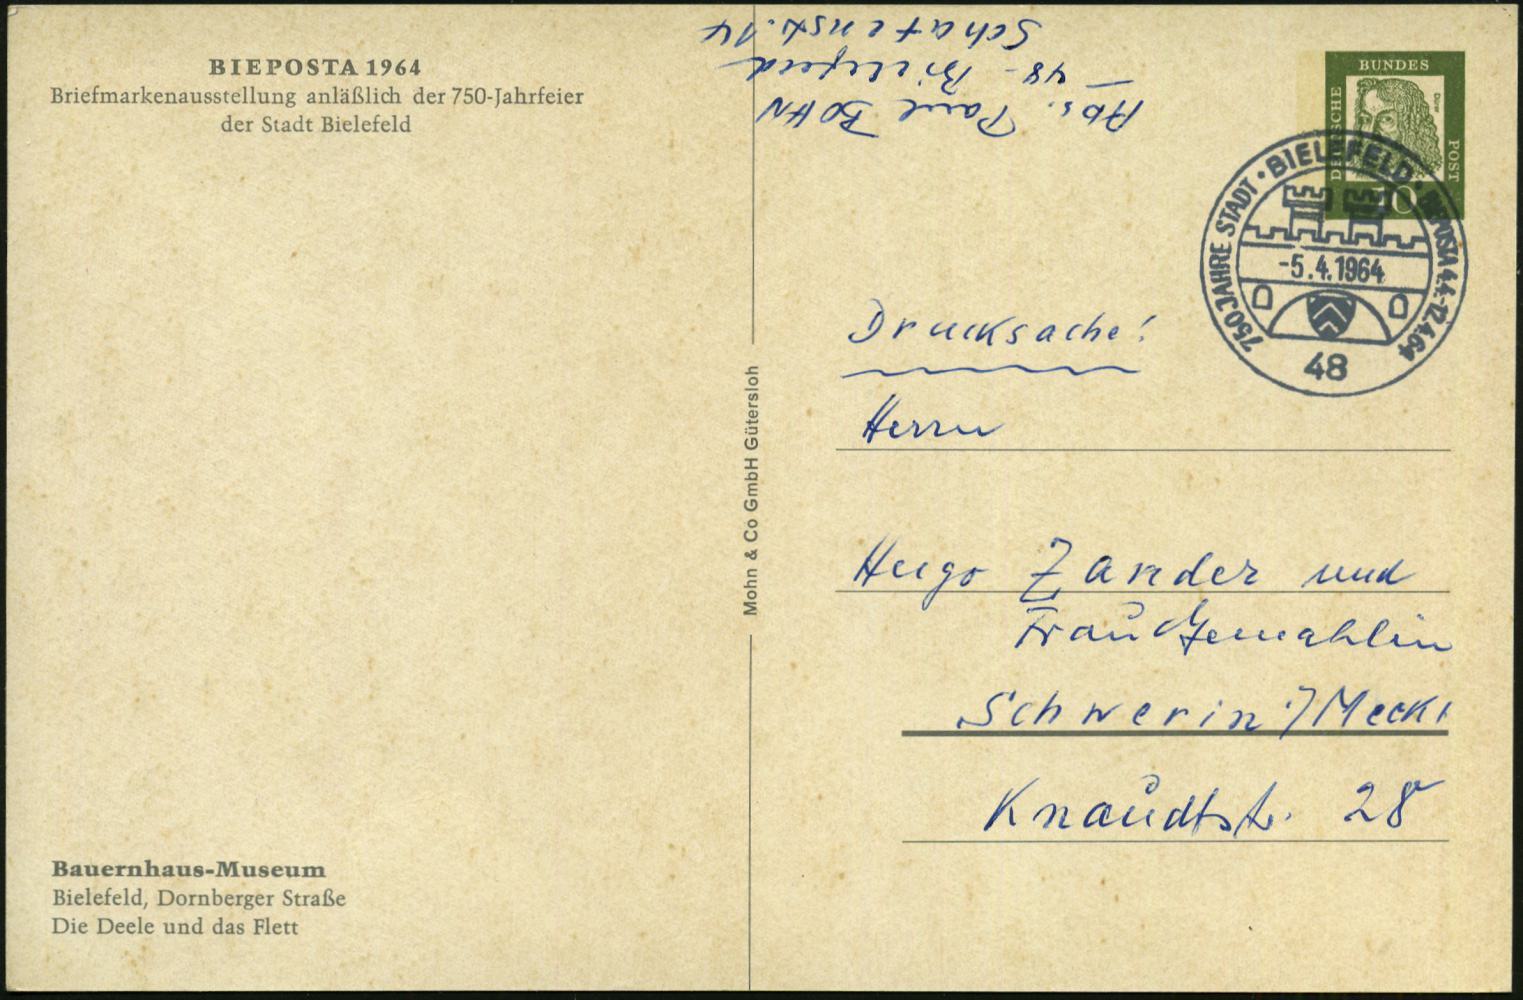 BIEPOSTA 1964
Briefmarkenausstellung anläßlich der 750-Jahrfeier
der Stadt Bielefeld
Abs. Paul BOHN
48 - Bielefeld
Schafenstr. 14
DEUTSCHE
BUNDES
POST
Dürer
10
750 JAHRE STADT • BIELEFELD • BIEPOSTA 4.4.-12.4.64
-5.4.1964
48
Drucksache!
Herrn
Hugo Zander und
Frau Gemahlin
Schwerin i/Meckl
Knaudtstr. 28
Mohn & Co GmbH Gütersloh
Bauernhaus-Museum
Bielefeld, Dornberger Straße
Die Deele und das Flett